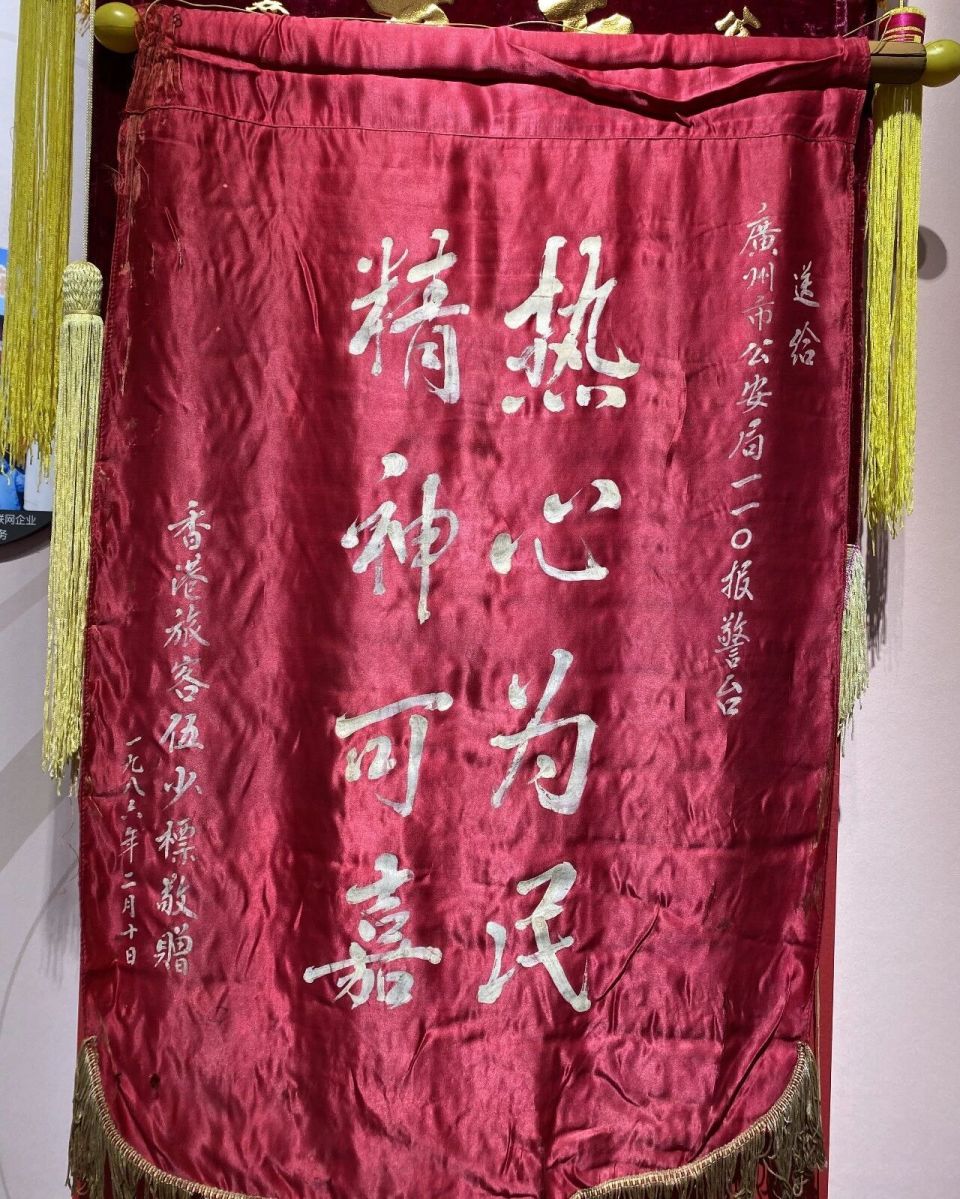 送给
廣州市公安局一一〇报警台
热心为民
精神可嘉
香港旅客伍少標敬贈
一九八六年二月十日
联网企业
务